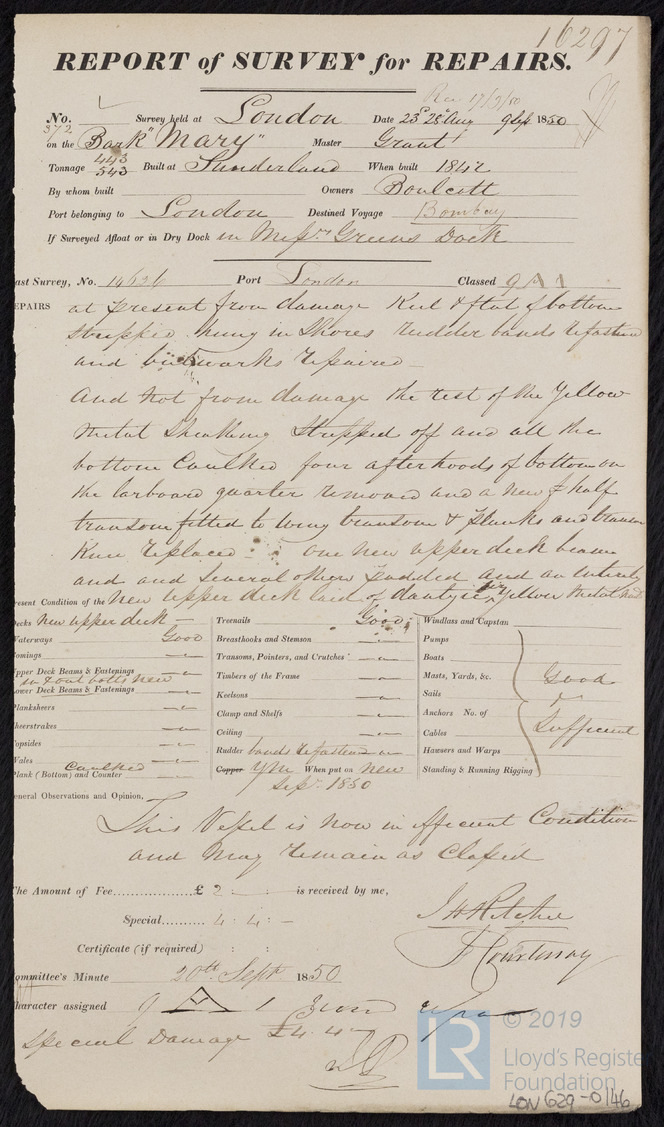 16297
REPORT of SURVEY for REPAIRS.
Rec 17/9/50
No. 372 Survey held at London Date 23 28 Aug 9 Sep 1850
on the Bark "Mary" Master Grant
Tonnage 443 543 Built at Sunderland When built 1842
By whom built Owners Boulcott
Port belonging to London Destined Voyage Bombay
If Surveyed Afloat or in Dry Dock in Messrs Greens Dock
ast Survey, No. 14626 Port London Classed 9 A 1
EPAIRS at present from damage Keel & flat of bottom
stripped hung in Shores rudder bands refastened
and bulwarks repaired
And not from damage the rest of the Yellow
Metal Sheathing Stripped off and all the
bottom Caulked four afterhoods of bottom on
the larboard quarter removed and a new half
transom fitted to wing transom & planks and transom
Knee replaced one new upper deck beam
and and several others padded and an entirely
new upper deck laid of dantzic fir Yellow Metal
resent Condition of the
ecks new upper deck
Waterways Good
omings
pper Deck Beams & Fastenings
in & out bolts new
ower Deck Beams & Fastenings
lanksheers
heerstrakes
opsides
Wales
lank (Bottom) and Counter Caulked
Treenails Good
Breasthooks and Stemson
Transoms, Pointers, and Crutches
Timbers of the Frame
Keelsons
Clamp and Shelfs
Ceiling
Rudder bands refastened
Copper YM When put on new
Sepr 1850
Windlass and Capstan
Pumps
Boats
Masts, Yards, &c. Good
Sails
Anchors No. of
Cables Sufficient
Hawsers and Warps
Standing & Running Rigging
eneral Observations and Opinion,
This Vessel is now in efficient Condition
and may remain as Classed
he Amount of Fee £ 2 : : is received by me,
Special 4 : 4 : –
Certificate (if required) : :
J H Ritchie
F Courtenay
ommittee's Minute 20th Sept 1850
haracter assigned 9 A 1
special Damage £4.4
© 2019
LR
Lloyd's Registe
Foundation
LON 629-0146